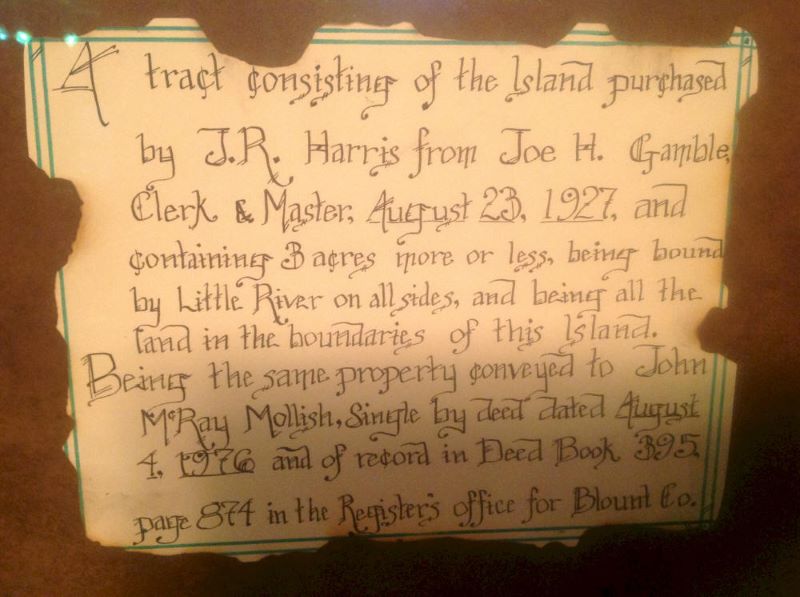 A tract consisting of the Island purchased
by J.R. Harris from Joe H. Gamble,
Clerk & Master, August 23, 1927, and
containing 3 acres more or less, being bound
by Little River on all sides, and being all the
land in the boundaries of this Island.
Being the same property conveyed to John
McRay Mollish, Single by deed dated August
4, 1976 and of record in Deed Book 395,
page 874 in the Register's office for Blount Co.